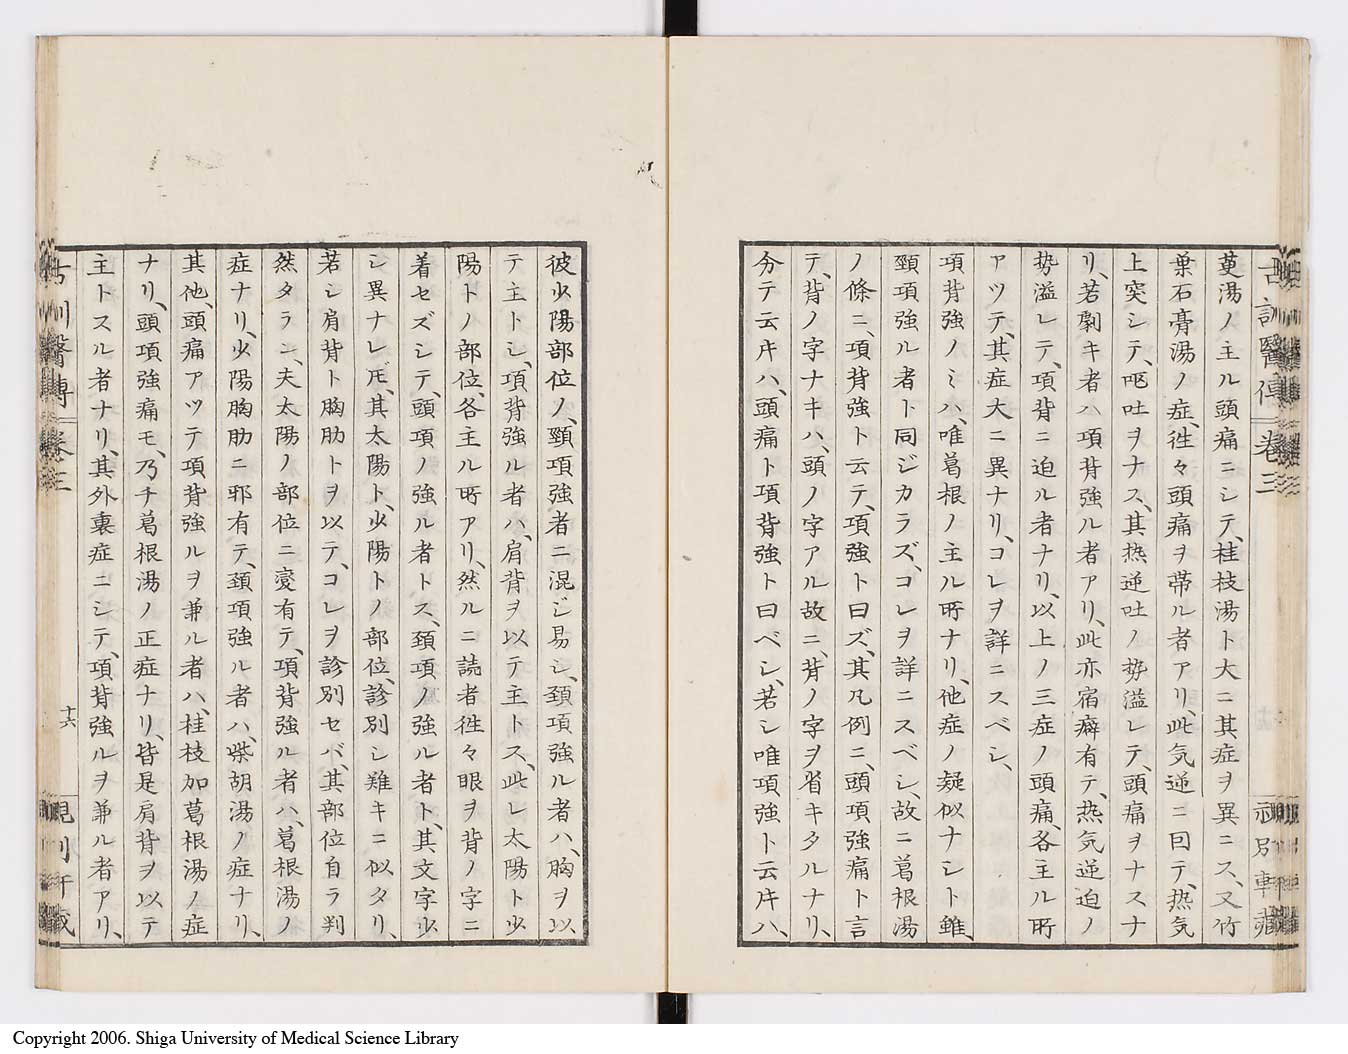 古訓醫傳 卷三
茰湯ノ主ル頭痛ニシテ、桂枝湯ト大ニ其症ヲ異ニス、又竹
葉石膏湯ノ症、徃々頭痛ヲ帶ル者アリ、此気逆ニ因テ、热気
上突シテ、呕吐ヲナス、其热逆吐ノ势溢レテ、頭痛ヲナスナ
リ、若劇キ者ハ項背強ル者アリ、此亦宿癖有テ、热気逆迫ノ
势溢レテ、項背ニ迫ル者ナリ、以上ノ三症ノ頭痛、各主ル所
アツテ、其症大ニ異ナリ、コレヲ詳ニスベシ、
項背強ノミハ、唯葛根ノ主ル所ナリ、他症ノ疑似ナシト雖、
頸項強ル者ト同ジカラズ、コレヲ詳ニスベシ、故ニ葛根湯
ノ條ニ、項背強ト云テ、項強ト曰ズ、其凡例ニ、頭項強痛ト言
テ、背ノ字ナキハ、頭ノ字アル故ニ、背ノ字ヲ省キタルナリ、
分テ云片ハ、頭痛ト項背強ト曰ベシ、若シ唯項強ト云片ハ、
彼少陽部位ノ、頸項強者ニ混ジ易シ、頸項強ル者ハ、胸ヲ以
テ主トシ、項背強ル者ハ、肩背ヲ以テ主トス、此レ太陽ト少
陽トノ部位、各主ル所アリ、然ルニ読者徃々眼ヲ背ノ字ニ
着セズシテ、頭項ノ強ル者トス、頸項ノ強ル者ト、其文字少
シ異ナレ𪜈、其太陽ト、少陽トノ部位、診別シ難キニ似タリ、
若シ肩背ト胸肋トヲ以テ、コレヲ診別セバ、其部位自ラ判
然タラン、夫太陽ノ部位ニ変有テ、項背強ル者ハ、葛根湯ノ
症ナリ、少陽胸肋ニ邪有テ、頸項強ル者ハ、柴胡湯ノ症ナリ、
其他、頭痛アツテ項背強ルヲ兼ル者ハ、桂枝加葛根湯ノ症
ナリ、頭項強痛モ、乃チ葛根湯ノ正症ナリ、皆是肩背ヲ以テ
主トスル者ナリ、其外裏症ニシテ、項背強ルヲ兼ル者アリ、
古訓醫傳 卷三
十六
Copyright 2006. Shiga University of Medical Science Library